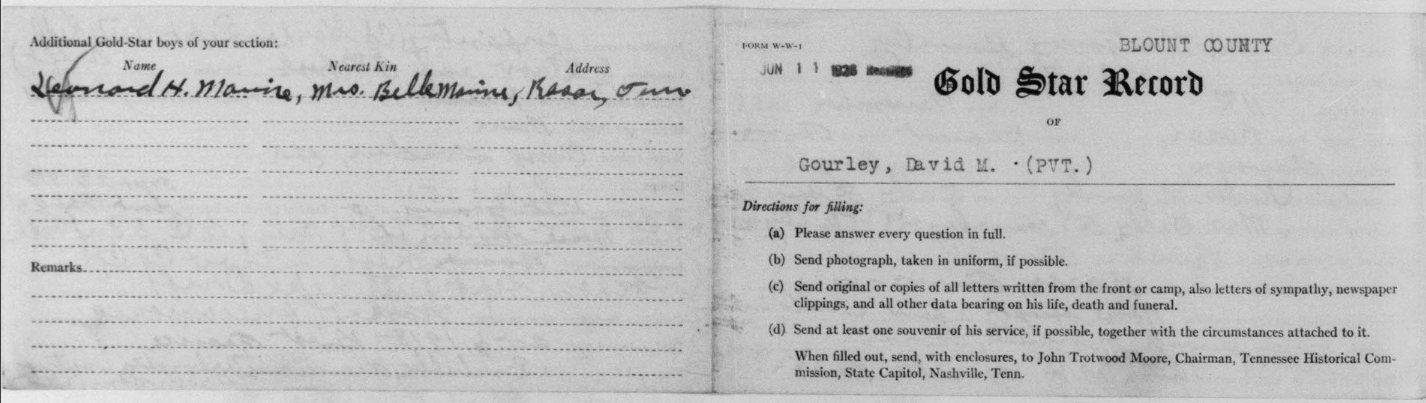 Additional Gold-Star boys of your section:
Name Nearest Kin Address
Leonard H. Manire, Mrs. Belle Manire, Tenn
Remarks
FORM W-W-1
BLOUNT COUNTY
JUN 11 1926
Gold Star Record
OF
Gourley, David M. (PVT.)
Directions for filling:
(a) Please answer every question in full.
(b) Send photograph, taken in uniform, if possible.
(c) Send original or copies of all letters written from the front or camp, also letters of sympathy, newspaper
clippings, and all other data bearing on his life, death and funeral.
(d) Send at least one souvenir of his service, if possible, together with the circumstances attached to it.
When filled out, send, with enclosures, to John Trotwood Moore, Chairman, Tennessee Historical Com-
mission, State Capitol, Nashville, Tenn.